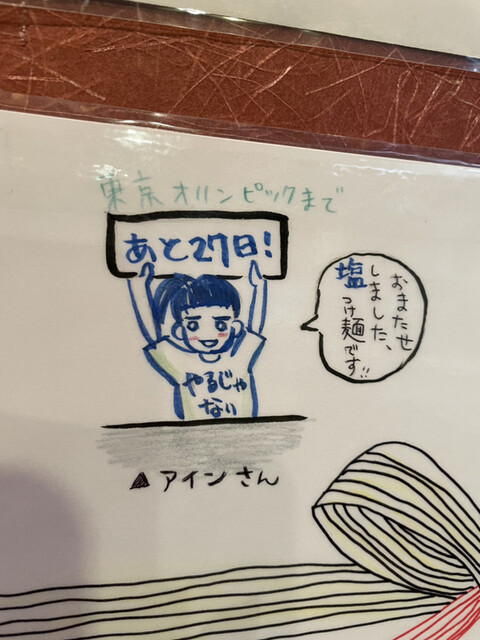 東京オリンピックまで
あと27日!
おまたせ
しました、
塩つけ麺です!!
やるじゃ
ない
▲アインさん